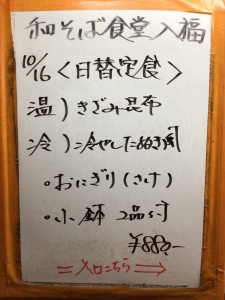 和そば食堂 入福
10/16 <日替定食>
温)きざみ昆布
冷)冷やしたぬき
・おにぎり(さけ)
・小鉢 2品付
¥880-
=入口こちら⇒